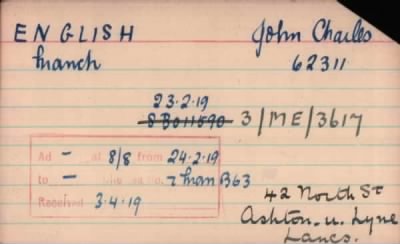 ENGLISH John Charles
Manch 62311
23.2.19
S B011590 3/ME/3617
Ad - at 8/8 from 24.2.19
to -
Received 3.4.19
42 North St
Ashton-u. Lyne
Lancs.